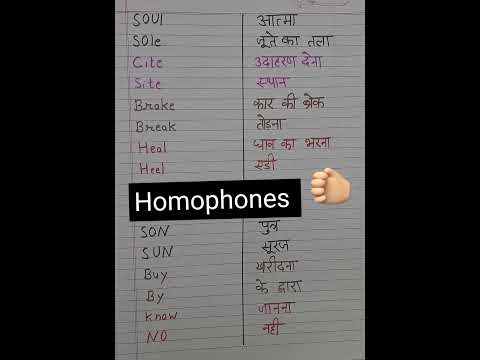 SOUl आत्मा
SOle जूते का तला
Cite उदाहरण देना
Site स्थान
Brake कार की ब्रेक
Break तोड़ना
Heal घाव का भरना
Heel एडी
Homophones
SON पुत्र
SUN सूरज
Buy खरीदना
By के द्वारा
Know जानना
NO नहीं